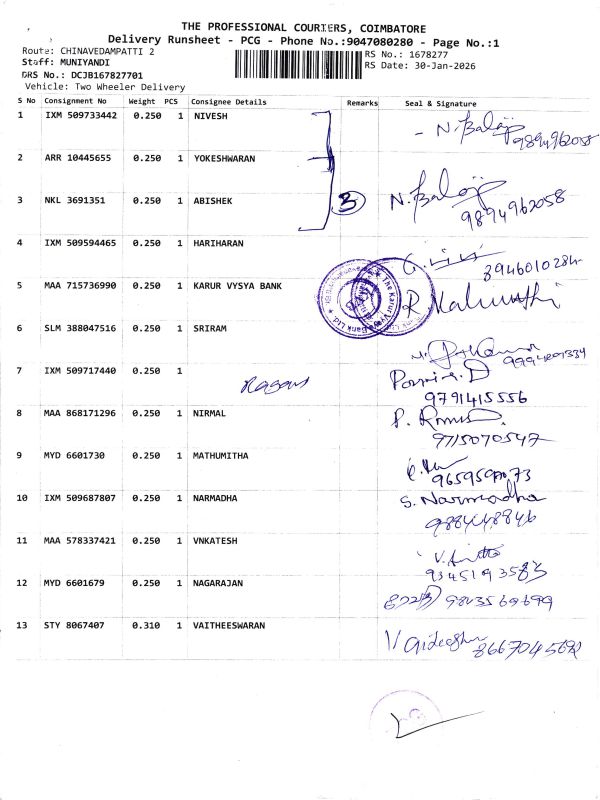 THE PROFESSIONAL COURIERS, COIMBATORE
Delivery Runsheet - PCG - Phone No.:9047080280 - Page No.:1
Route: CHINAVEDAMPATTI 2
RS No.: 1678277
Staff: MUNIYANDI
RS Date: 30-Jan-2026
DRS No.: DCJB167827701
Vehicle: Two Wheeler Delivery
S No Consignment No Weight PCS Consignee Details Remarks Seal & Signature
1 IXM 509733442 0.250 1 NIVESH - N. Balaji
9894962058
2 ARR 10445655 0.250 1 YOKESHWARAN
3 NKL 3691351 0.250 1 ABISHEK 3 N. Balaji
9894962058
4 IXM 509594465 0.250 1 HARIHARAN
5 MAA 715736990 0.250 1 KARUR VYSYA BANK
6 SLM 388047516 0.250 1 SRIRAM
7 IXM 509717440 0.250 1
9791415556
8 MAA 868171296 0.250 1 NIRMAL
9715070547
9 MYD 6601730 0.250 1 MATHUMITHA
10 IXM 509687807 0.250 1 NARMADHA S. Narmadha
11 MAA 578337421 0.250 1 VNKATESH
9345193583
12 MYD 6601679 0.250 1 NAGARAJAN
13 STY 8067407 0.310 1 VAITHEESWARAN